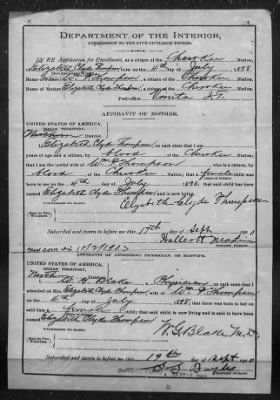 DEPARTMENT OF THE INTERIOR,
COMMISSION TO THE FIVE CIVILIZED TRIBES.
IN RE Application for Enrollment, as a citizen of the Cherokee Nation,
of Elizabeth Clyde Thompson, born on the 11th day of July, 1898
Name of Father: Wm P. Thompson, a citizen of the Cherokee Nation.
Name of Mother: Elizabeth Clyde Thompson, a citizen of the Cherokee Nation.
Post-office Vinita I.T.
AFFIDAVIT OF MOTHER.
UNITED STATES OF AMERICA,
INDIAN TERRITORY,
Northern District.
I, Elizabeth Clyde Thompson, on oath state that I am
years of age and a citizen, by blood, of the Cherokee Nation;
that I am the lawful wife of Wm P Thompson, who is a citizen, by
blood of the Cherokee Nation; that a female child was
born to me on 11th day of July, 1898; that said child has been
named Elizabeth Clyde Thompson, and is now living.
Elizabeth Clyde Thompson
Subscribed and sworn to before me this 17th day of Sept, 1900
NOTARY PUBLIC.
AFFIDAVIT OF ATTENDING PHYSICIAN, OR MIDWIFE.
UNITED STATES OF AMERICA,
INDIAN TERRITORY,
I, W. G. Blake, a Physician, on oath state that I
attended on Mrs. Elizabeth Clyde Thompson, wife of Wm P Thompson
on the 11th day of July, 1898; that there was born to her
on said date a female child; that said child is now living and is said to have
been named Elizabeth Clyde Thompson
W. G. Blake M.D.
Subscribed and sworn to before me this 19th day of Sept, 1900
NOTARY PUBLIC.